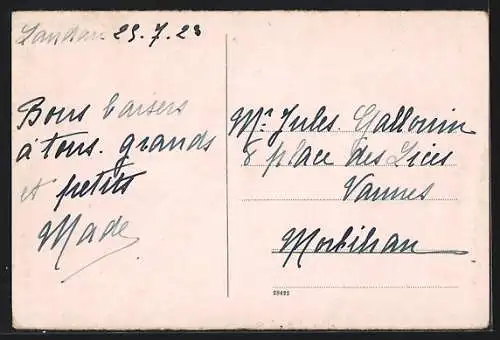 Landau 25.7.23
Bons baisers
à tous. grands
et petits
Made
Mr Jules. Gallouin
8 place des Lices
Vannes
Morbihan